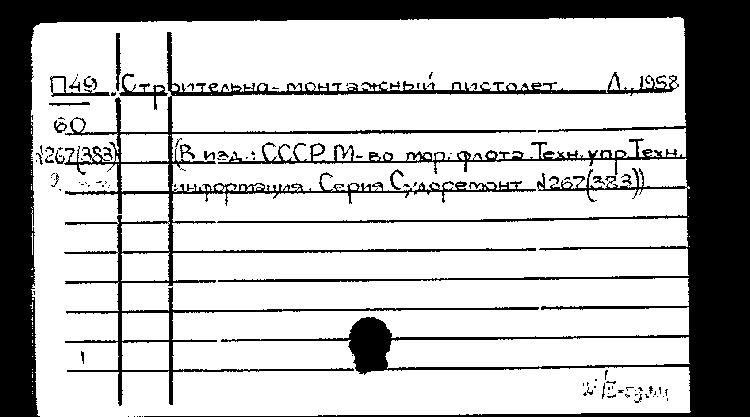 П49 Строительно-монтажный пистолет. Л., 1958
60
№267(383) (В изд.: СССР. М-во мор. флота. Техн. упр. Техн.
информация. Серия Судоремонт №267(383)).
1